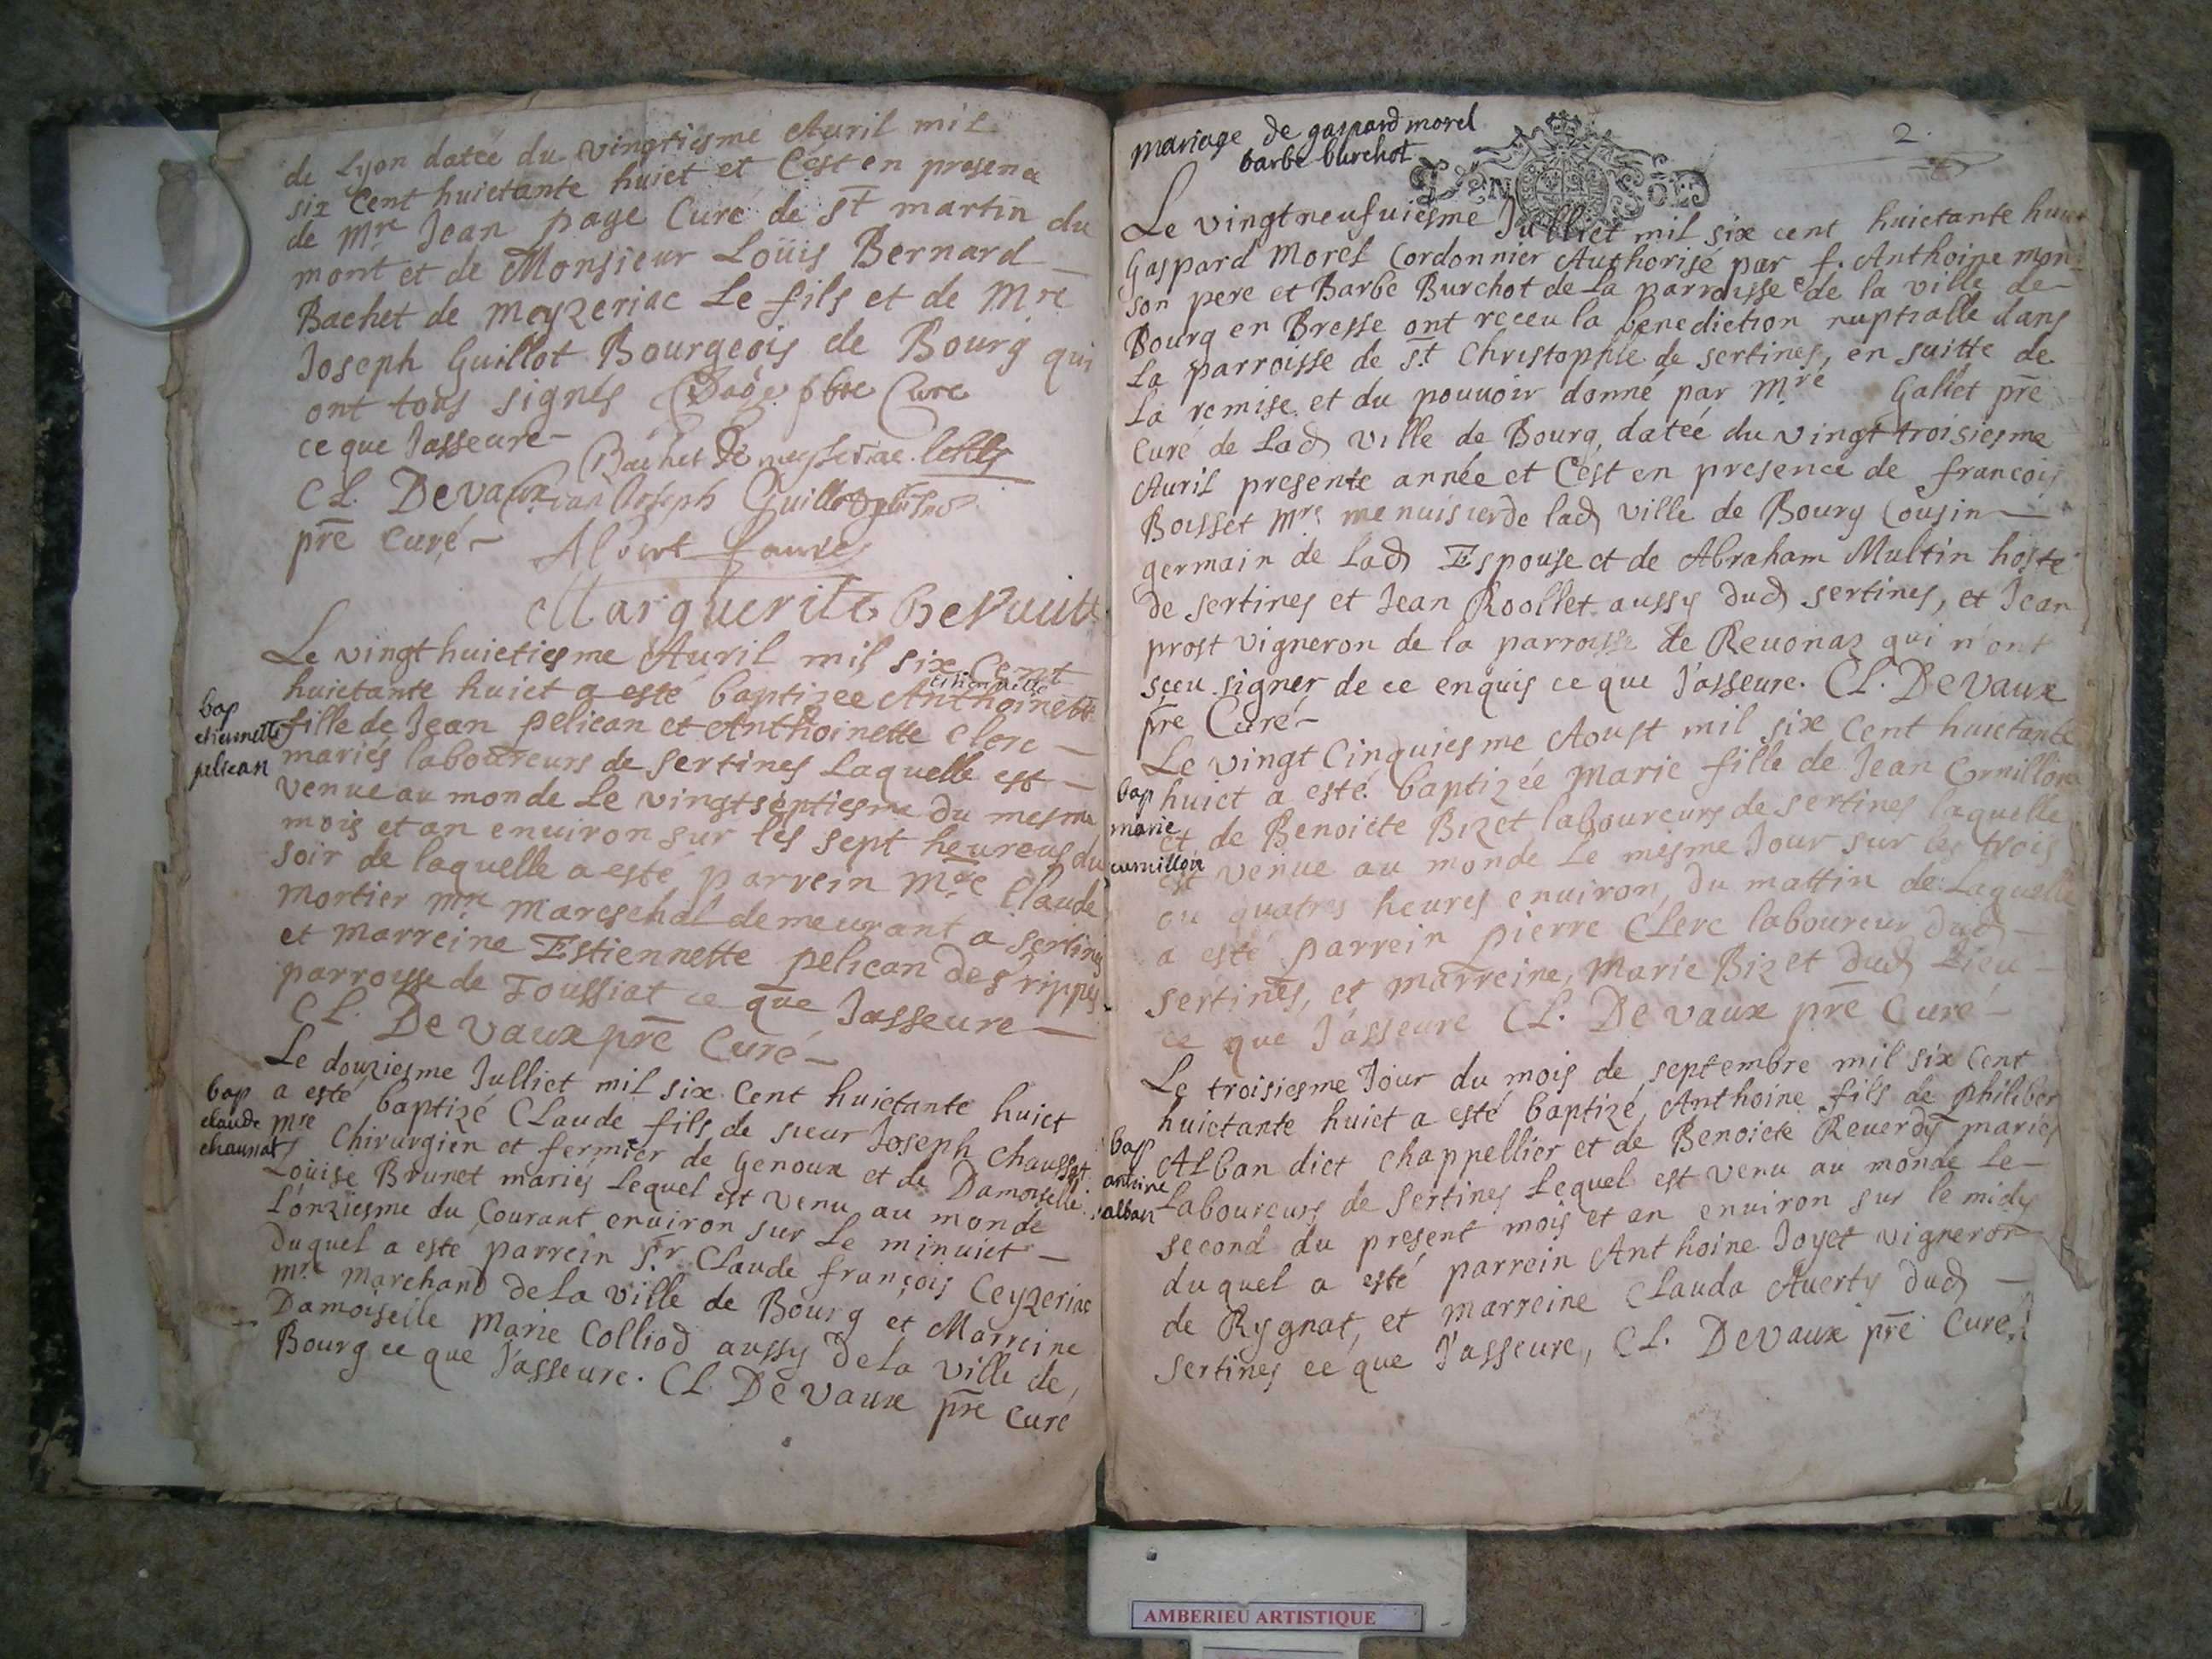 de Lyon datée du vingtiesme Auril mil
six Cent huictante huict et C'est en presence
de Mre Jean page Curé de St martin du
mont et de Monsieur Loüis Bernard
Bachet de meyzeriac Le fils et de Mre
Joseph Guillot Bourgeois de Bourg qui
ont tous signés Page pbre Cure
ce que Jasseure
Bachet De meyseriac lefils
CL. Devaux Joseph Guillot
pre Curé
Albert faure
Marguerite
Le vingthuictiesme Auril mil six Cent
estiennette
huictante huict a esté baptizee Anthoinette
bap
etiennette
pelican
fille de Jean pelican et Anthoinette Clerc
mariés laboureurs de sertines Laquelle est
venue au monde Le vingtseptiesme du mesme
mois et an enuiron sur les sept heures du
soir de laquelle a esté parrein Mre Claude
mortier mre mareschal demeurant a sertines
et marreine Estiennette pelican des rippes
parroisse de Toussiat ce que Jasseure
CL. De vaux pre Curé
Le douziesme Julliet mil six Cent huictante huict
bap
claude
chaussat
a esté baptizé Claude fils de sieur Joseph Chaussat
mre Chirurgien et fermier de Genoux et de Damoiselle
Loüise Brunet mariés Lequel est venu au monde
L'onziesme du Courant enuiron sur Le minuict
duquel a esté parrein Sr. Claude françois Ceyzeriac
mre marchand de La ville de Bourg et Marreine
Damoiselle Marie Colliod aussy de La ville de
Bourg ce que J'asseure. CL. De vaux pre Curé
mariage de gaspard morel
barbe burchot
2
Le vingtneufuiesme Julliet mil six cent huictante huict
Gaspard Morel Cordonnier Authorisé par f. Anthoine
son pere et Barbe Burchot de La parroisse de la ville de
Bourg en Bresse ont receu la benediction nuptialle dans
La parroisse de St Christophle de sertines, en suitte de
La remise et du pouuoir donné par Mre Gallet pre
Curé de Lad ville de Bourg, datée du vingt troisiesme
Auril presente année et C'est en presence de francois
Boisset Mre menuisier de lad ville de Bourg Cousin
germain de Lad Espouse et de Abraham Multin hoste
de sertines et Jean Roollet aussy dud sertines, et Jean
prost vigneron de la parroisse de Reuonas qui n'ont
sceu signer de ce enquis ce que J'asseure. CL. De vaux
pre Curé
Le vingt Cinquiesme Aoust mil six Cent huictante
bap
marie
curnillon
huict a esté baptizée Marie fille de Jean Cornillon
et de Benoicte Bizet laboureurs de sertines laquelle
est venue au monde Le mesme Jour sur les trois
ou quatres heures enuiron, du mattin de Laquelle
a esté parrein pierre Clerc laboureur dud
sertines, et marreine, Marie Bizet dud Lieu
ce que J'asseure CL. De vaux pre Curé
Le troisiesme Jour du mois de septembre mil six Cent
huictante huict a esté baptizé, Anthoine fils de philibert
bap
antoine
alban
Alban dict chappellier et de Benoicte Reuerdy mariés
Laboureurs de sertines Lequel est venu au monde Le
second du present mois et an enuiron sur le midy
duquel a esté parrein Anthoine Joyet vigneron
de Rygnat, et marreine Clauda Auerty dud
sertines ce que J'asseure, CL. De vaux pre Curé.
AMBERIEU ARTISTIQUE